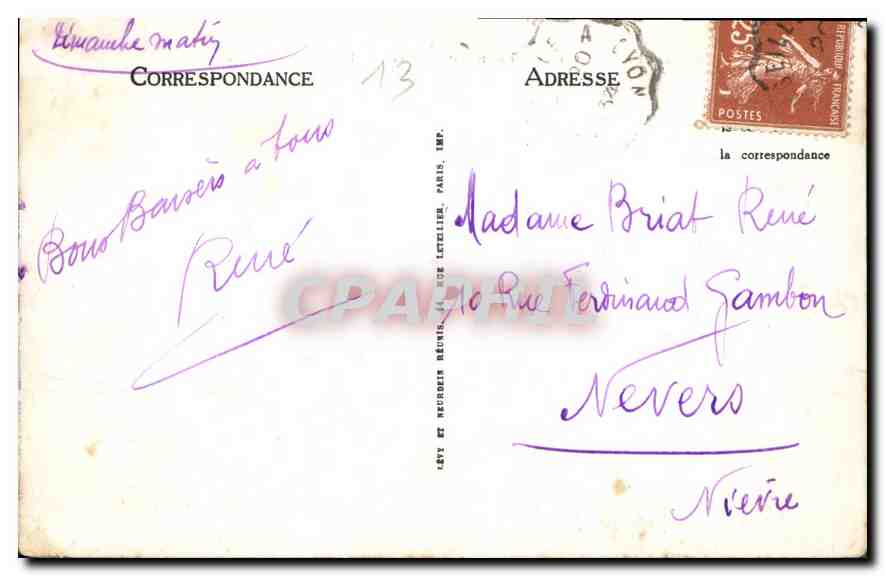 Dimanche matin
CORRESPONDANCE
13
Bons Baisers a tous
René
LÉVY ET NEURDEIN RÉUNIS, 44, RUE LETELLIER, PARIS, IMP.
ADRESSE
LYON
A
20
25c
REPUBLIQUE FRANÇAISE
POSTES
la correspondance
Madame Briat René
10 Rue Ferdinand Gambon
Nevers
Nièvre
CPARAMA